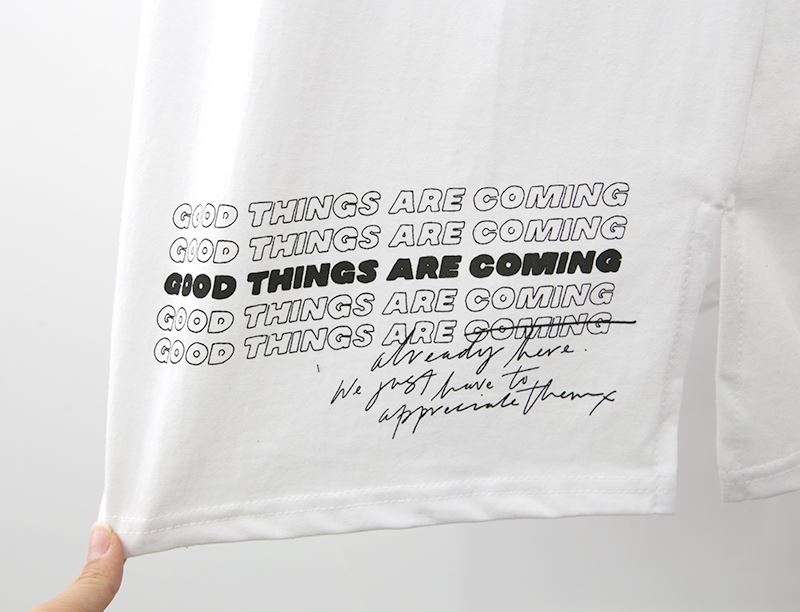 GOOD THINGS ARE COMING
GOOD THINGS ARE COMING
GOOD THINGS ARE COMING
GOOD THINGS ARE COMING
GOOD THINGS ARE COMING
already here.
We just have to
appreciate them x